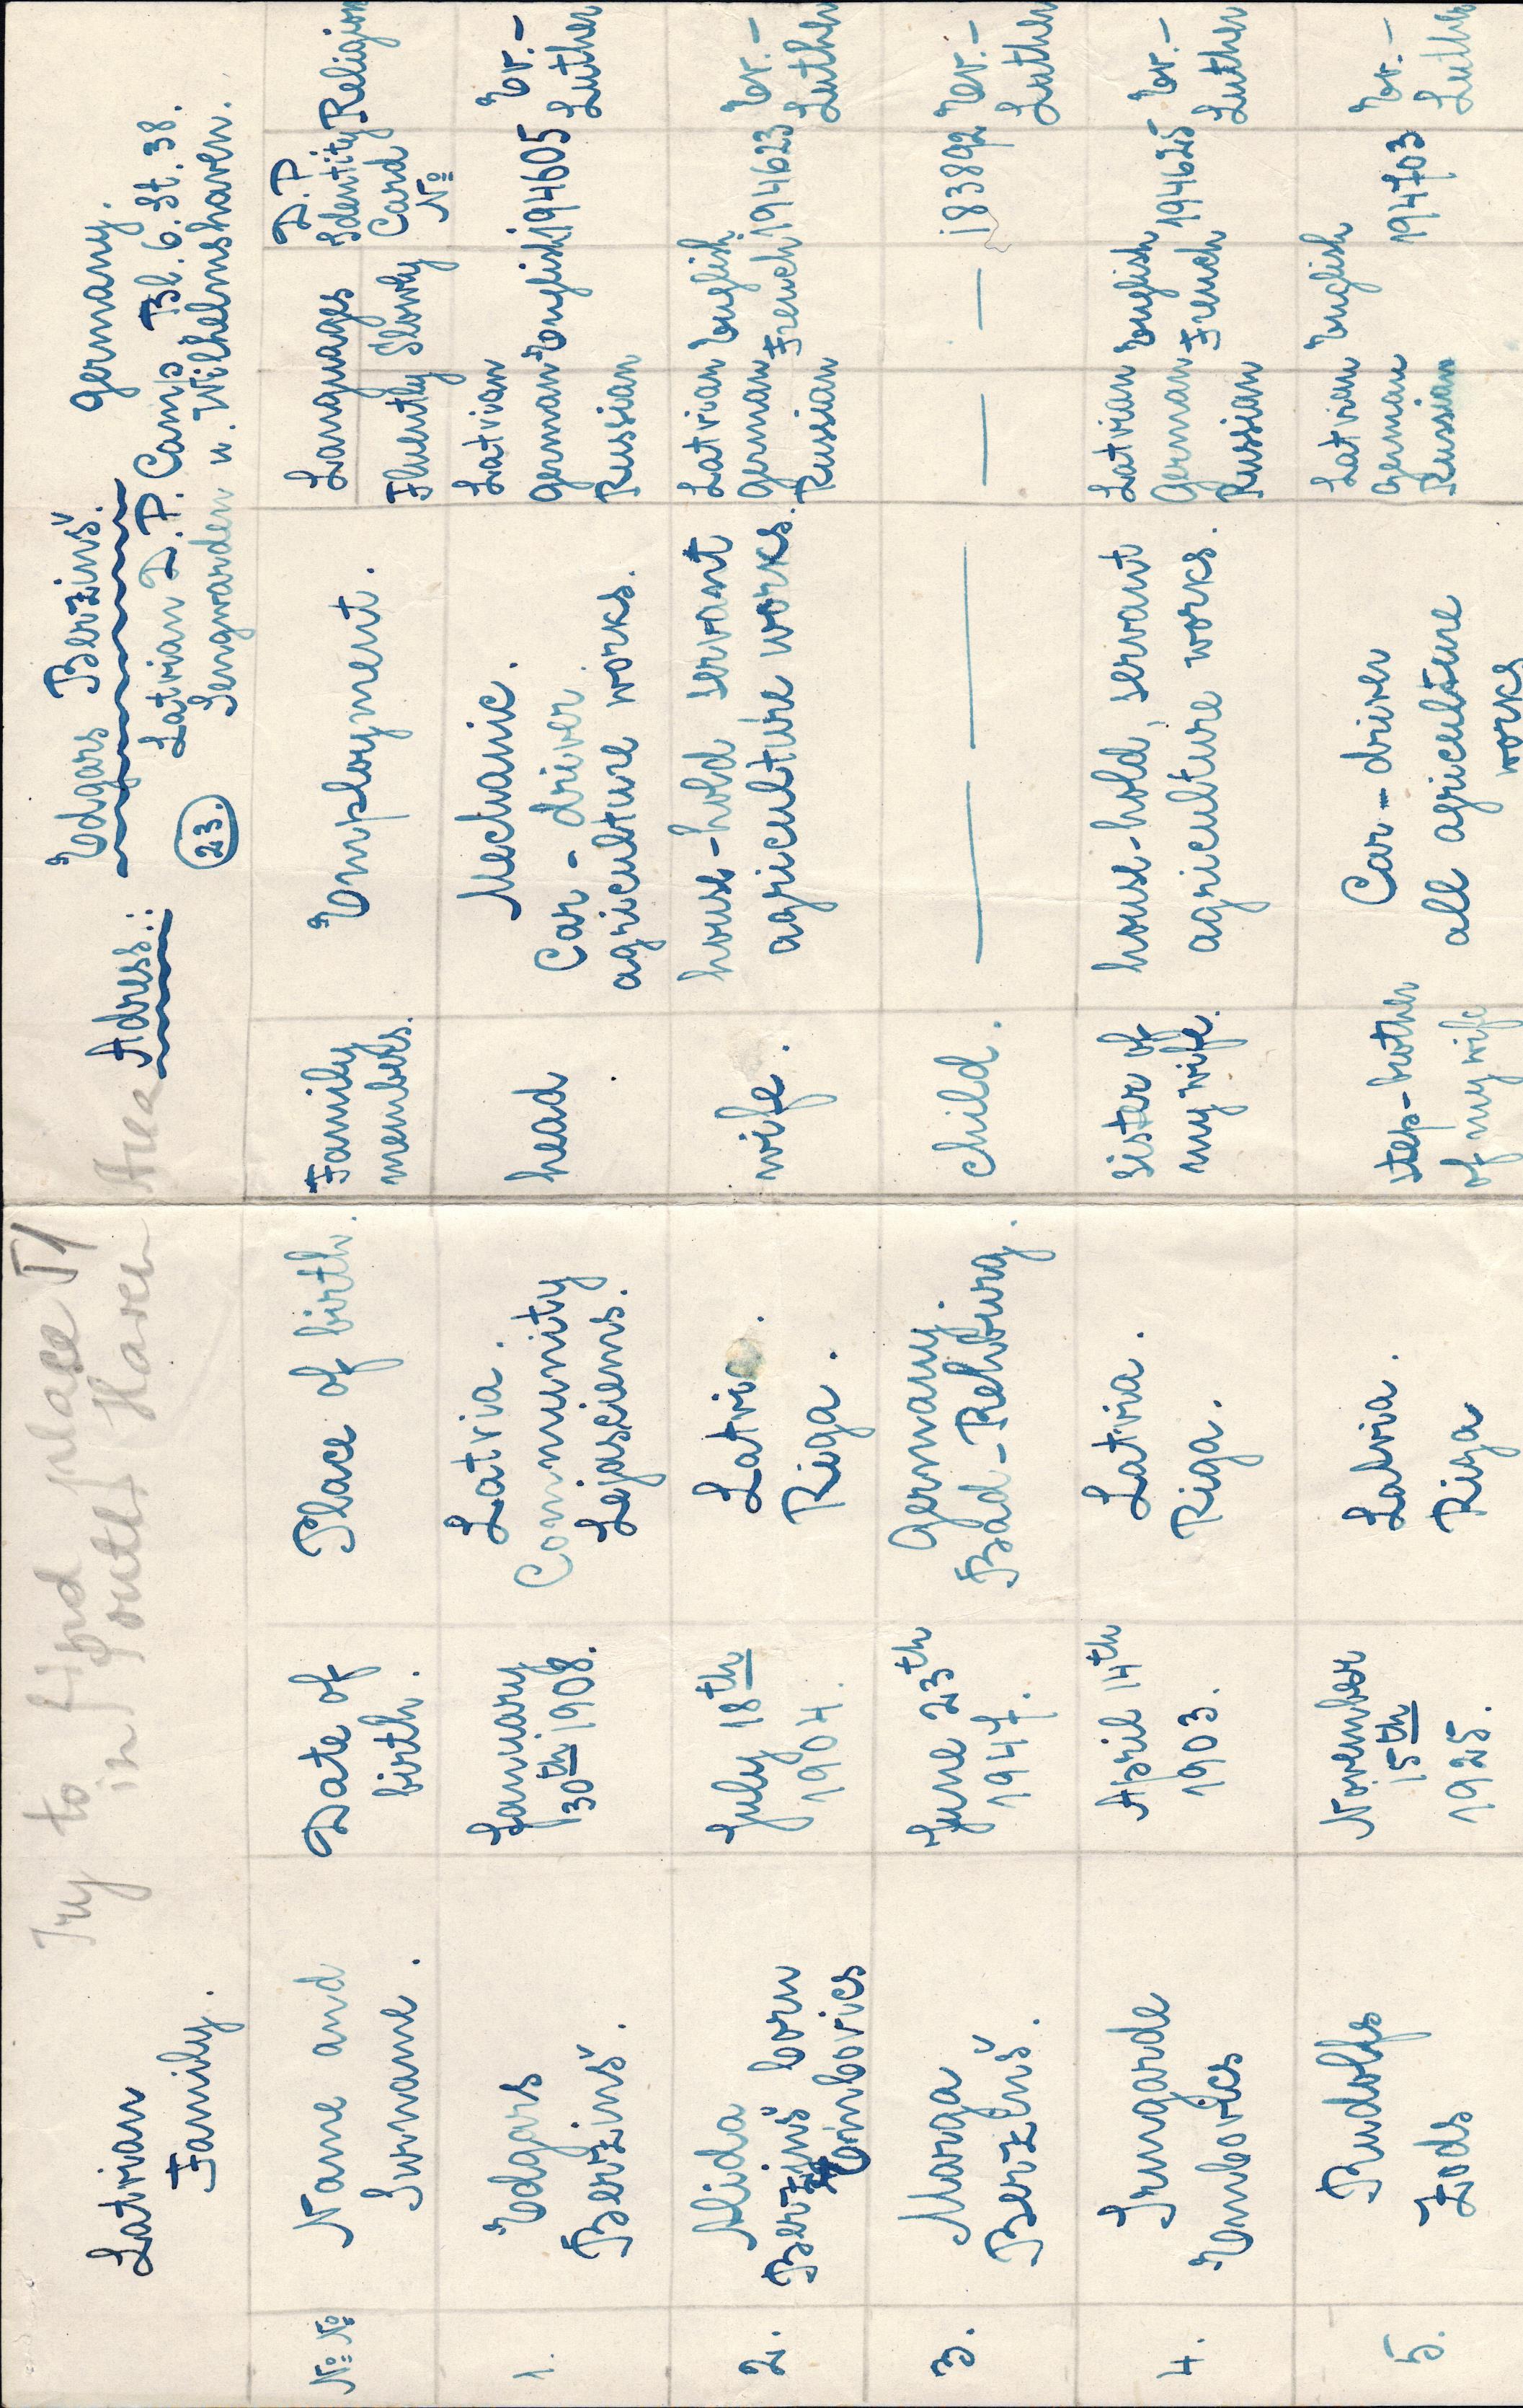 Try to find place
in outer Haven Area
Latvian
Family.
Adress:
Edgars Berzinš.
Germany.
Latvian D.P. Camp Bl. 6. St. 38.
Sengwarden n. Wilhelmshaven.
23.
№ №
Name and
Surname.
Date of
birth.
Place of birth.
Family
members.
Employment.
Languages
Fluently Slowly
D.P
Identity
Card
№
Religion
1.
Edgars
Berzinš.
January
30th 1908.
Latvia.
Community
Lejasciems.
head
Mechanic.
Car-driver
agriculture works.
Latvian
German English
Russian
194605
Ev.-
Luther
2.
Alida
Berzinš born
Embovics
July 18th
1904.
Latvia.
Riga.
wife.
house-hold servant
agriculture works.
Latvian English
German French
Russian
194623
Ev.-
Luther
3.
Maruga
Berzinš.
June 23th
1947.
Germany.
Bad-Rehburg.
child.
— —
—
—
183892
Ev.-
Luther
4.
Irmgarde
Embovics
April 14th
1903.
Latvia.
Riga.
sister of
my wife.
house-hold, servant
agriculture works.
Latvian English
German French
Russian
194625
Ev.-
Luther
5.
Rudolfs
Zods
November
15th
1925.
Latvia.
Riga
step-brother
of my wife
Car-driver
all agriculture
works
Latvian English
German
Russian
194703
Ev.-
Luther